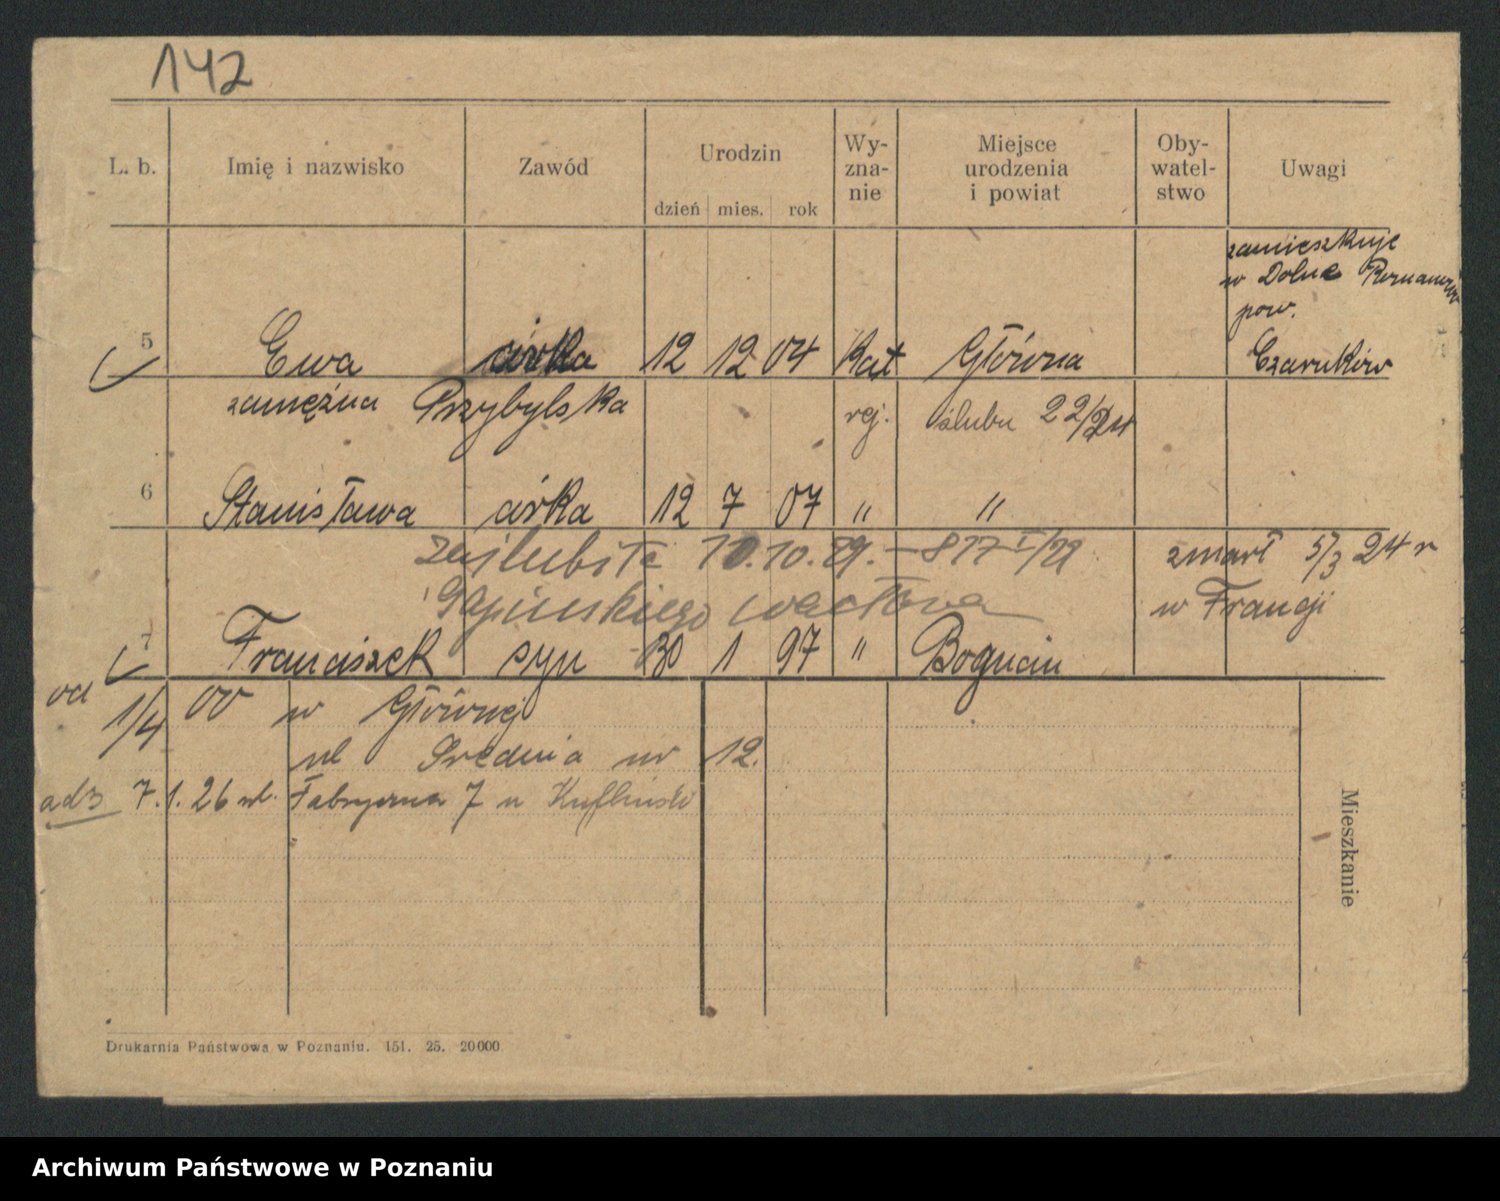 142
L. b. Imię i nazwisko Zawód Urodzin dzień mies. rok Wy- zna- nie Miejsce urodzenia i powiat Oby- watel- stwo Uwagi
zamieszkuje
w Dolne
pow.
5 Ewa córka 12 12 04 Kat Główna Czarnków
zamężna Przybylska rej. ślubu 22/24
6 Stanisława córka 12 7 07 " "
zaślubiła 10.10.29. – 817 I/29 zmarł 5/3 24 r
Wacława w Francji
7 Franciszek syn 30 1 97 " Bogucin
od 1/4 00 w Głównej
ul Średnia nr 12.
adz 7.1.26 ul. Fabryczna 7 u
Mieszkanie
Drukarnia Państwowa w Poznaniu. 151. 25. 20000
Archiwum Państwowe w Poznaniu